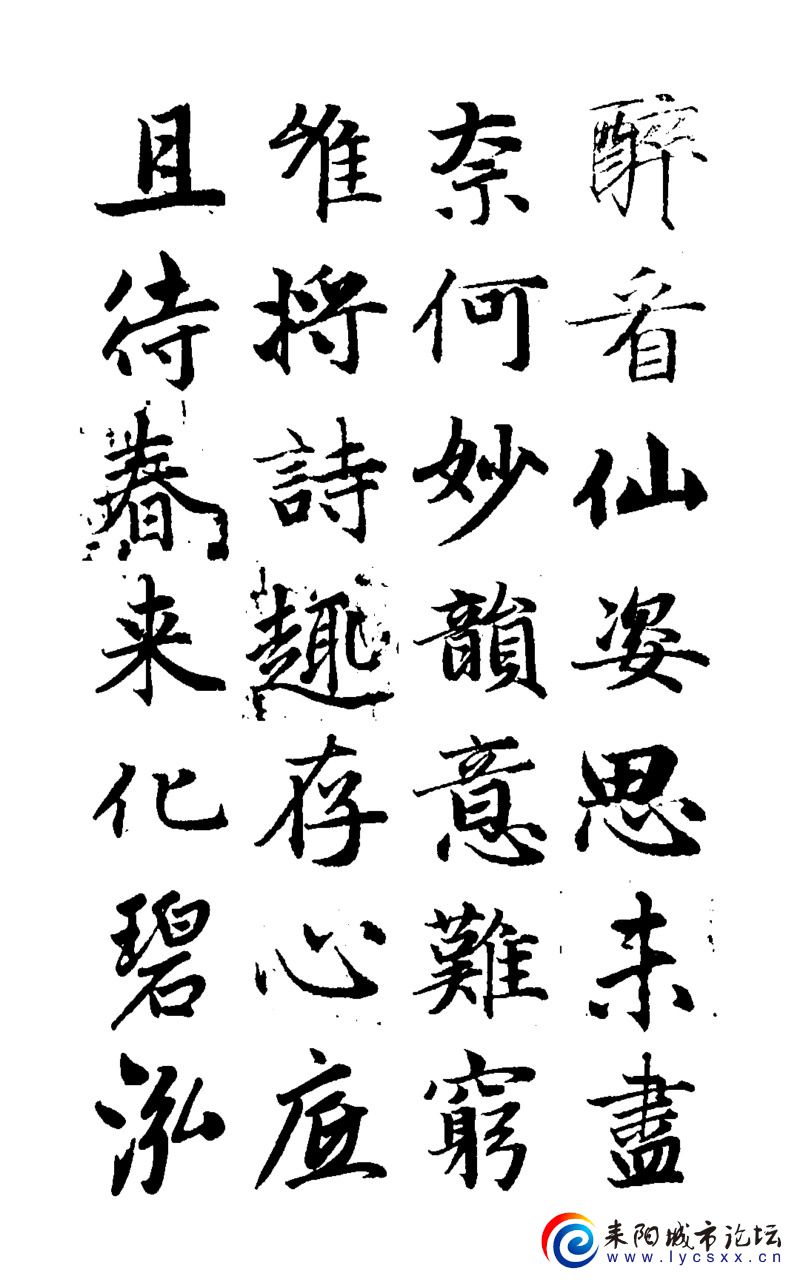 醉看仙姿思未盡
奈何妙韻意難窮
唯將詩趣存心底
且待春来化碧泓
耒阳城市论坛
www.lycsxx.cn